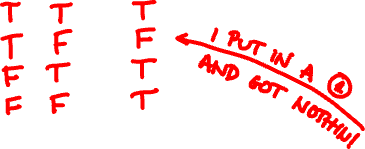 T T T
T F F
F T T
F F T
I PUT IN A 2
AND GOT NOTHIN!